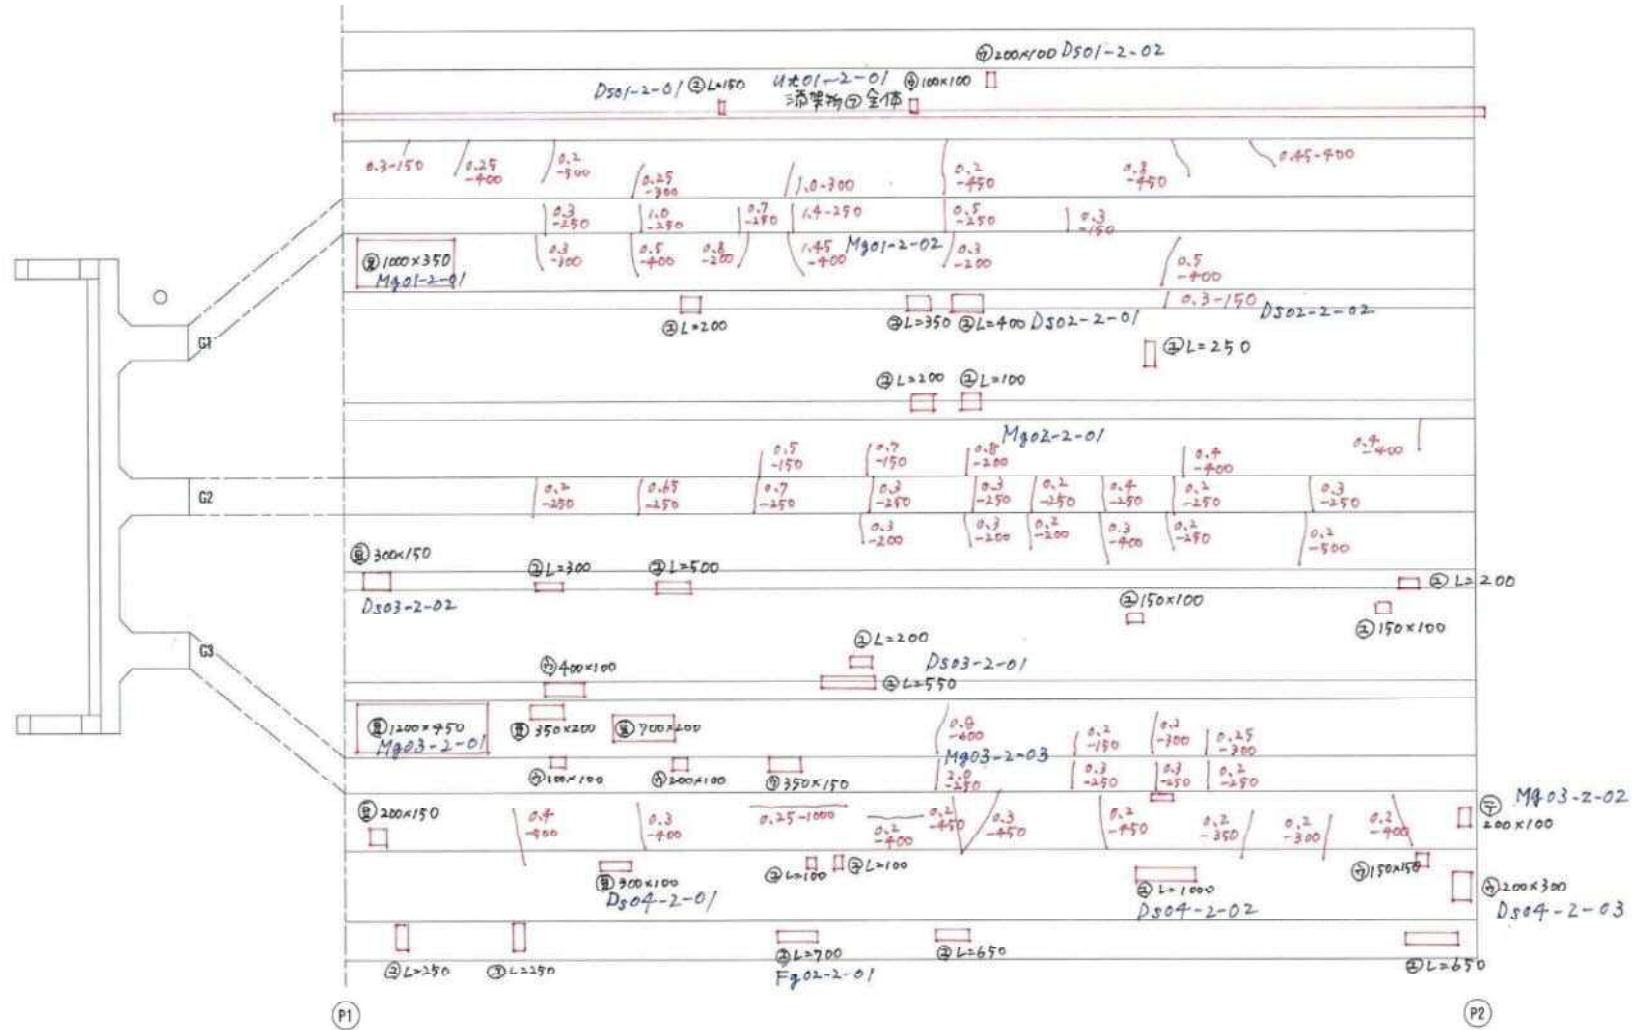 200×100 Ds01-2-02
Ds01-2-01
L=150
Ut01-2-01
100×100
添架物㋐全体
0.3-150
0.25
-400
0.2
-500
0.25
-300
1.0-300
0.2
-450
0.45-400
0.3
-250
1.0
-250
0.7
-250
1.4-250
0.5
-250
0.3
-150
1000×350
Mg01-2-01
0.3
-300
0.5
-400
0.8
-200
1.45
-400
Mg01-2-02
0.3
-200
0.5
-400
0.3-150
Ds02-2-02
L=200
L=350
L=400
Ds02-2-01
G1
L=250
L=200
L=100
Mg02-2-01
0.5
-150
0.7
-150
0.8
-200
0.4
-400
0.4
-400
G2
0.2
-250
0.65
-250
0.7
-250
0.3
-250
0.3
-250
0.2
-250
0.4
-250
0.2
-250
0.3
-250
0.3
-200
0.3
-200
0.2
-200
0.3
-400
0.2
-250
0.2
-500
300×150
L=300
L=500
L=200
Ds03-2-02
150×100
150×100
G3
L=200
400×100
Ds03-2-01
L=550
1200×450
Mg03-2-01
350×200
700×200
-600
0.2
-150
-300
0.25
-300
Mg03-2-03
100×100
200×100
350×150
2.0
-250
0.3
-250
0.3
-250
0.2
-250
200×150
0.4
-500
0.3
-400
0.25-1000
0.2
-400
0.2
-450
0.3
-450
0.2
-450
0.2
-350
0.2
-300
0.2
-400
Mg03-2-02
200×100
300×100
Ds04-2-01
L=100
L=100
L=1000
Ds04-2-02
150×150
200×300
Ds04-2-03
L=250
L=250
L=700
Fg02-2-01
L=650
L=650
P1
P2